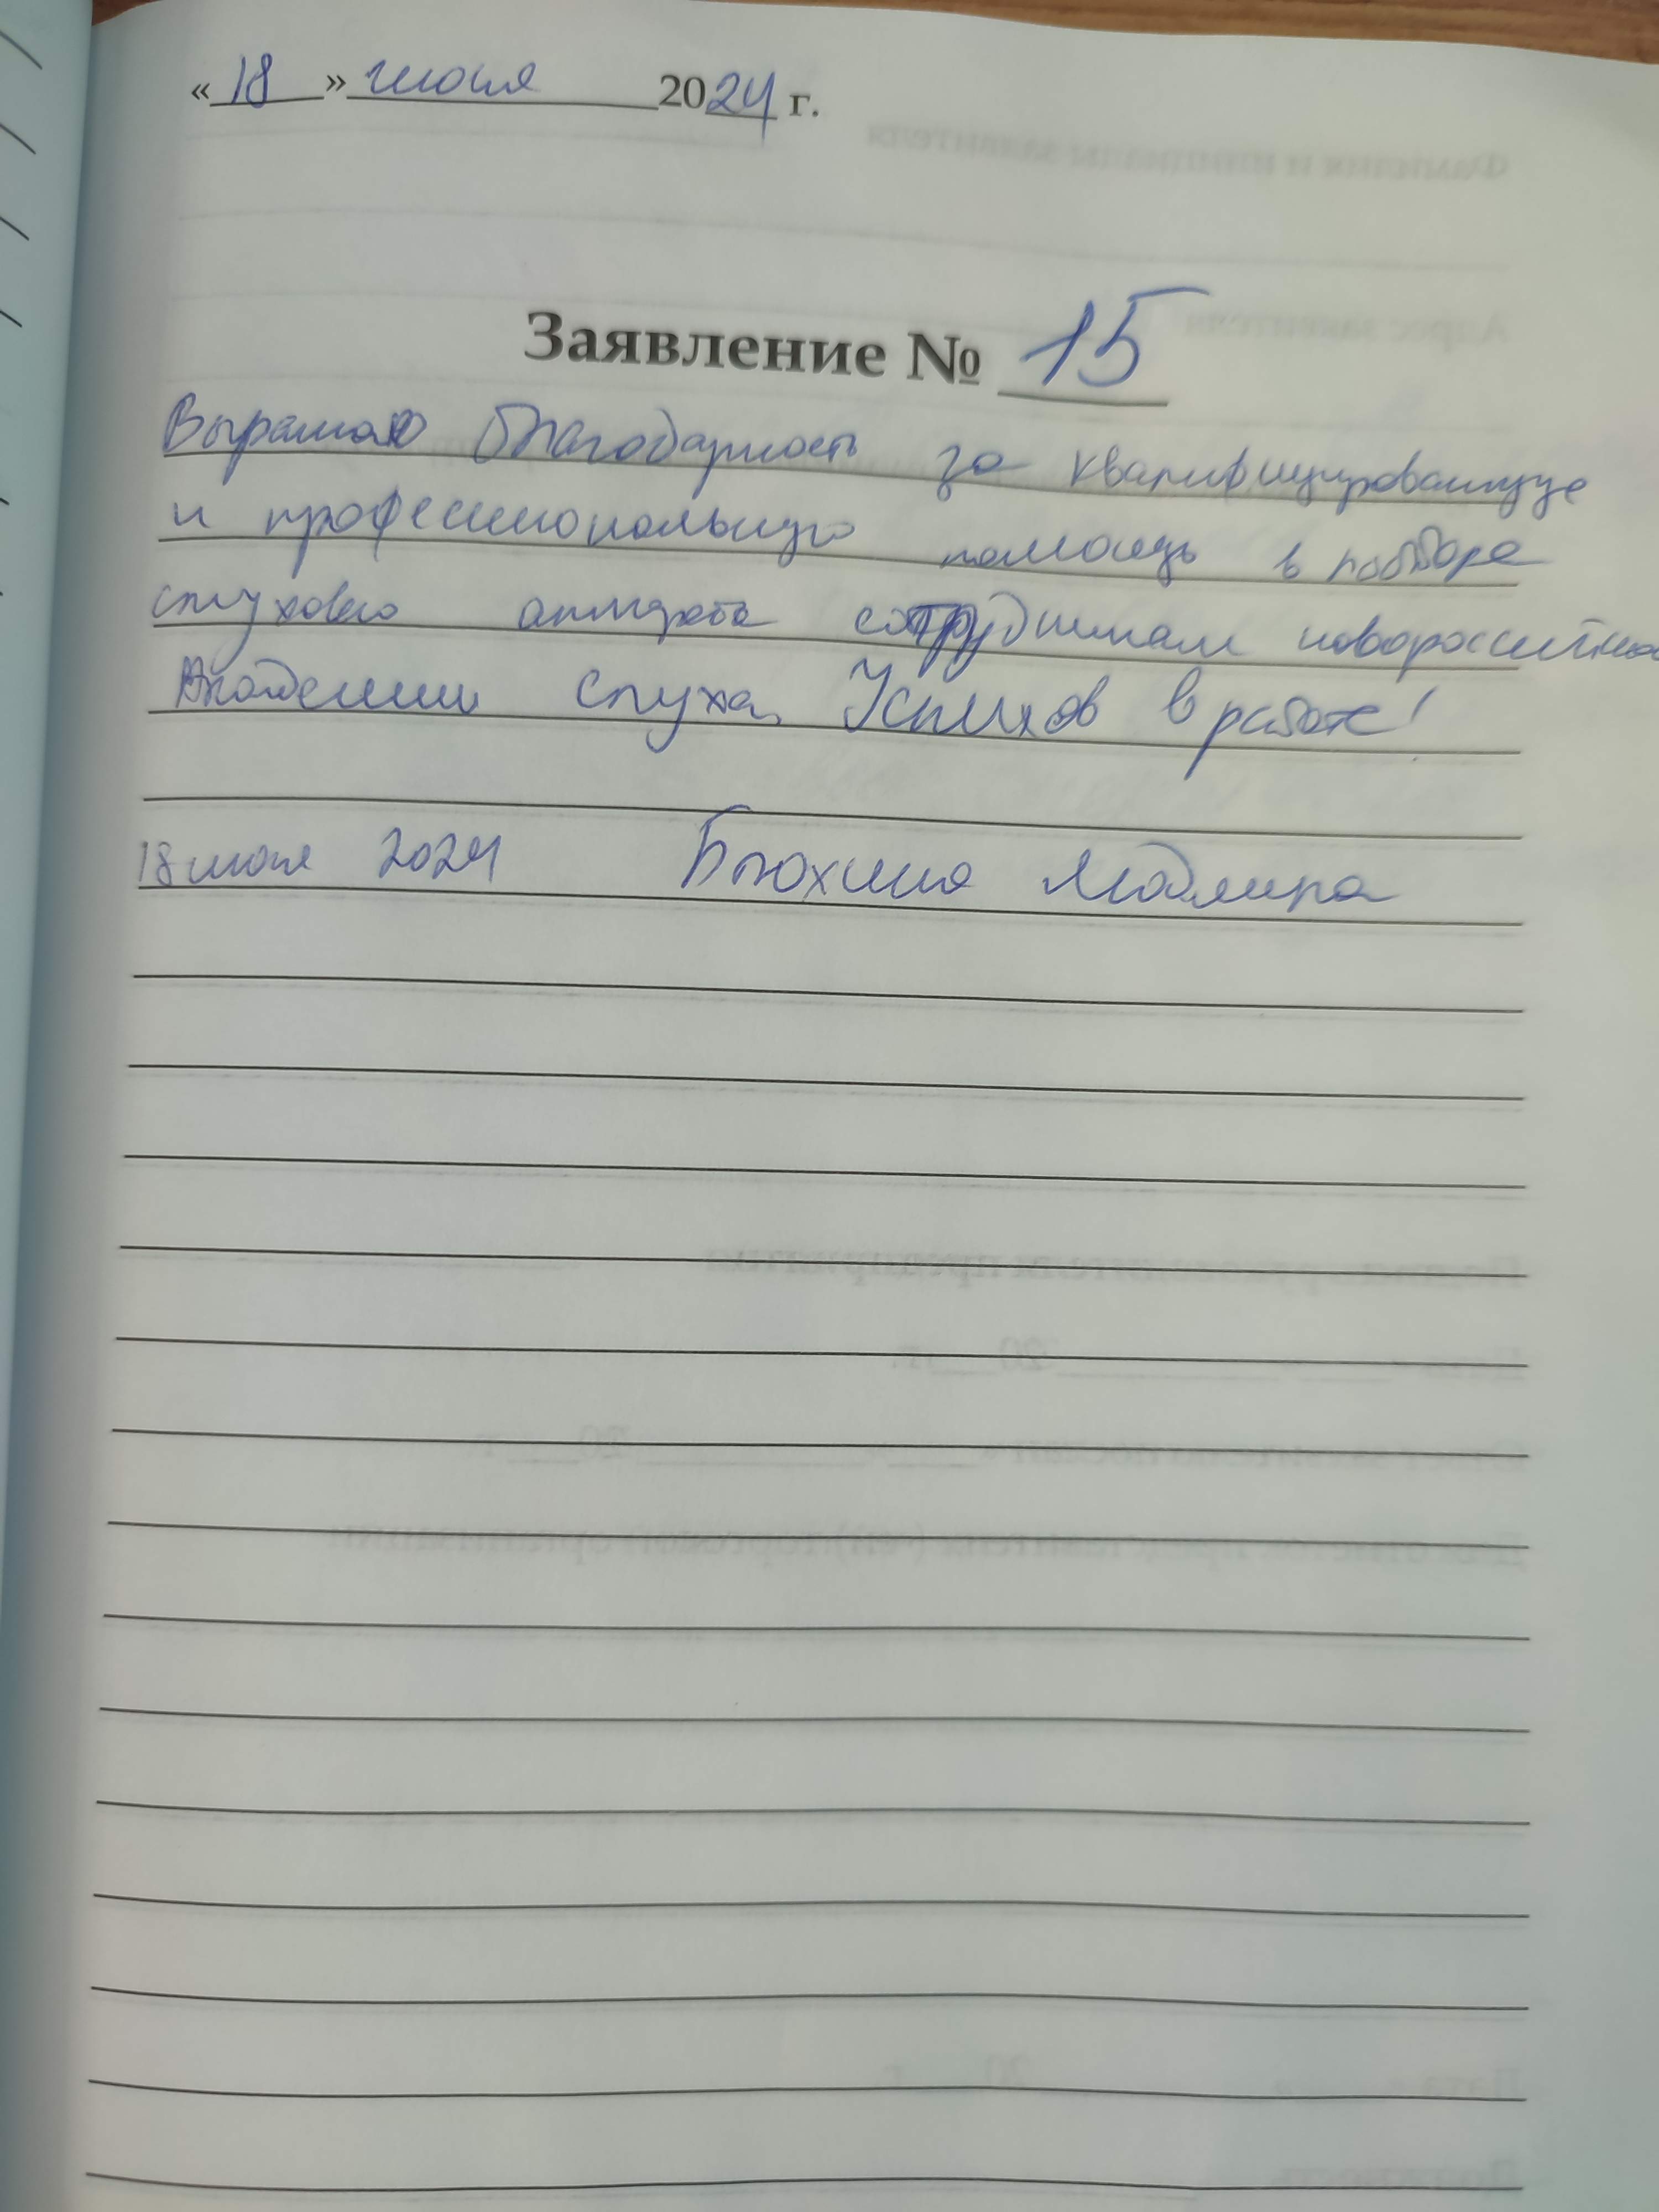 «18» июля 2024 г.
Заявление № 15
Выражаю благодарность за квалифицированную
и профессиональную помощь в подборе
слухового аппарата сотрудникам новороссийской
Академии слуха. Успехов в работе!
18 июля 2024 Блохина Людмила